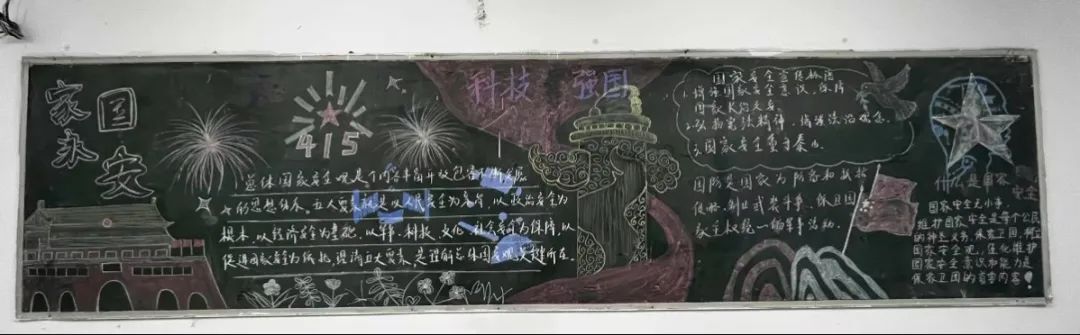 家国
永安
415
科技 强国
1.总体国家安全观是一个内容丰富开放包容不断发展
的思想体系。五大要素就是以人民安全为宗旨,以政治安全为
根本,以经济安全为基础,以军事、科技、文化、社会安全为保障,以
促进国际安全为依托,理清五大要素,是理解总体国家安全观的关键所在。
国家安全宣传标语
1.增强国家安全意识,保障
国家长治久安
2.弘扬宪法精神,增强法治观念。
3.国家安全重于泰山。
国防是国家为防备和抵抗
侵略,制止武装
家主权统一
什么是国家
安全
国家安全无小事,
维护国家安全是每个公民
的神圣义务,保家卫国,树立
国家安全观,强化维护
国家安全意识和能力是
保家卫国的首要内容!